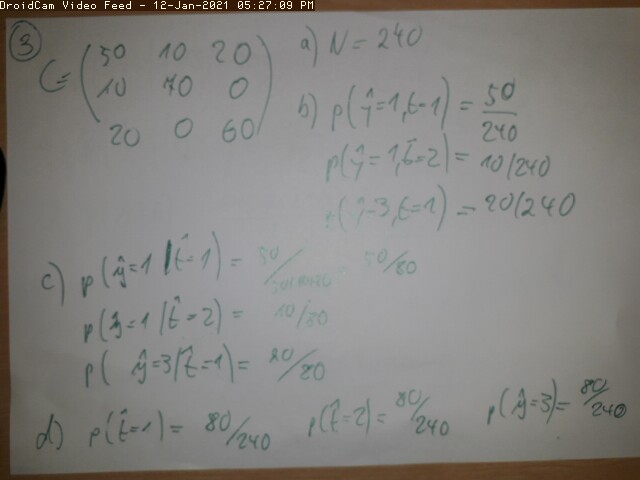 DroidCam Video Feed - 12-Jan-2021 05:27:09 PM
③ C = ( 50 10 20
10 70 0
20 0 60 )
a) N = 240
b) p(ŷ=1, t=1) = 50/240
p(ŷ=1, t̂=2) = 10/240
(ŷ=3, t=1) = 20/240
c) p(ŷ=1 | t̂=1) = 50/ = 50/80
p(ŷ=1 | t̂=2) = 10/
p( ŷ=3 | t̂=1) = 20/80
d) p(t̂=1) = 80/240 p(t̂=2) = 80/240 p(ŷ=3) = 80/240